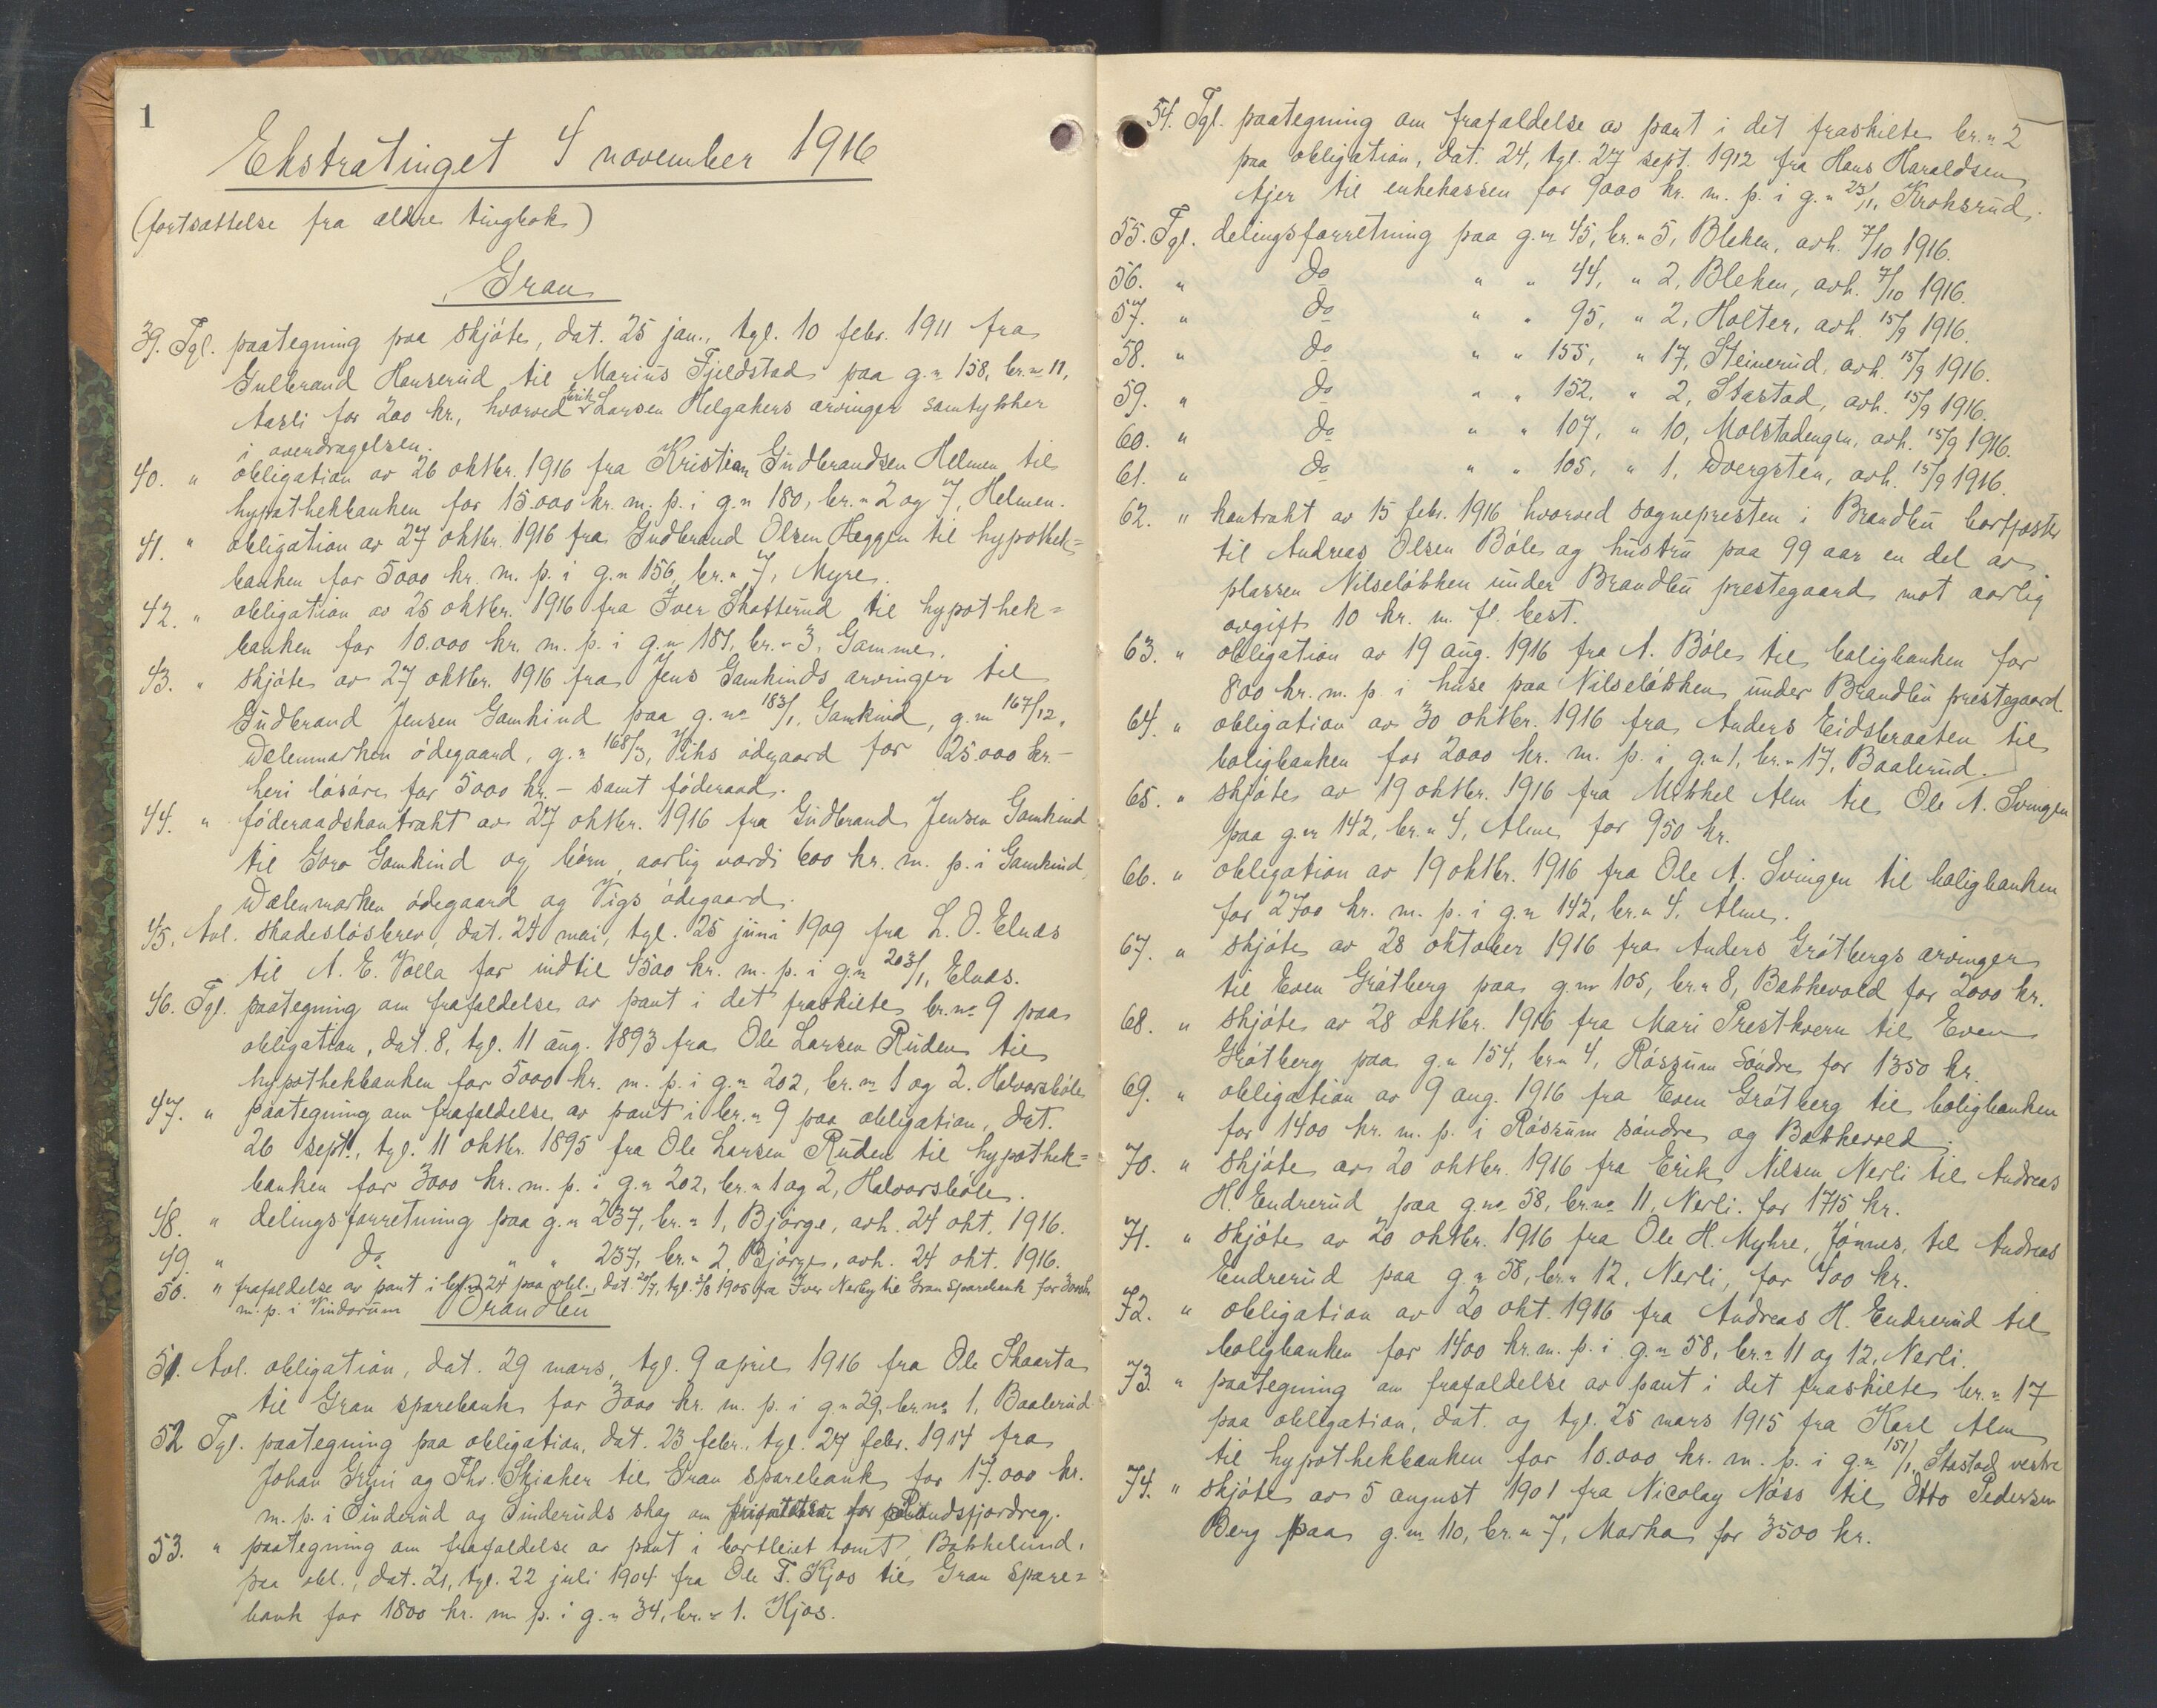 1
Ekstratinget 4 november 1916
(fortsættelse fra ældre tingbok)
Gran
39. Tgl. paategning paa skjöte, dat. 25 jan., tgl. 10 febr. 1911 fra
Gulbrand Hanserud til Marius Fjeldstad paa g.n 158, br.n 11,
Aasli for 200 kr., hvorved Erik Larsen Helgakers arvinger samtykker
i overdragelsen.
40. " obligation av 26 oktbr. 1916 fra Kristian Gudbrandsen Helmen til
hypothekbanken for 15.000 kr. m. p. i g.n 180, br.n 2 og 7, Helmen.
41. " obligation av 27 oktbr. 1916 fra Gudbrand Olsen Heggen til hypothek=
banken for 5000 kr. m. p. i g.n 156, br.n 7, Myre.
42. " obligation av 25 oktbr. 1916 fra Iver Skatterud til hypothek=
banken for 10.000 kr. m. p. i g.n 181, br.n 3, Gamme.
43. " skjöte av 27 oktbr. 1916 fra Jens Gamkinds arvinger til
Gudbrand Jensen Gamkind paa g.no 183/1, Gamkind, g.n 167/12,
Dælenmarken ödegaard, g.n 168/3, Viks ödegaard for 25.000 kr. –
heri lösöre for 5000 kr. – samt föderaad.
44. " föderaadskontrakt av 27 oktbr. 1916 fra Gudbrand Jensen Gamkind
til Goro Gamkind og börn, aarlig værdi 600 kr. m. p. i Gamkind,
Dælenmarken ödegaard og Vigs ödegaard.
45. Avl. skadeslösbrev, dat. 24 mai, tgl. 25 juni 1909 fra L. O. Elnæs
til A. E. Volla for indtil 4500 kr. m. p. i g.n 203/1, Elnæs.
46. Tgl. paategning om frafaldelse av pant i det fraskilte br.no 9 paa
obligation, dat. 8, tgl. 11 aug. 1893 fra Ole Larsen Ruden til
hypothekbanken for 5000 kr. m. p. i g.n 202, br.no 1 og 2. Halvorsböle
47. " paategning om frafaldelse av pant i br.n 9 paa obligation, dat.
26 sept., tgl. 11 oktbr. 1895 fra Ole Larsen Ruden til hypothek=
banken for 3000 kr. m. p. i g.n 202, br.n 1 og 2, Halvorsböle.
48. " delingsforretning paa g.n 237, br.n 1, Björge, avh. 24 okt. 1916.
49. " do " " 237, br.n 2, Björge, avh. 24 okt. 1916.
50. " frafaldelse av pant i br.n 24 paa obl., dat. 29/7, tgl. 2/8 1905 fra Iver Nerby til Gran Sparebank for 300 kr.
m. p. i Vindorum
Brandbu
51. Avl. obligation, dat. 29 mars, tgl. 9 april 1916 fra Ole Skaarta
til Gran sparebank for 3000 kr. m. p. i g.n 29, br.no 1, Baalerud
52 Tgl. paategning paa obligation, dat. 23 febr., tgl. 27 febr. 1914 fra
Johan Grini og Thv. Skiaker til Gran sparebank for 17.000 kr.
m. p. i Sinderud og Sinderuds skog om prioritet for Randsfjordreg.
53. " paategning om frafaldelse av pant i bortleiet tomt, Bakkelund,
paa obl., dat. 21, tgl. 22 juli 1904 fra Ole T. Kjos til Gran Spare=
bank for 1800 kr. m. p. i g.n 34, br.n 1. Kjos.
54. Tgl. paategning om frafaldelse av pant i det fraskilte br.n 2
paa obligation, dat. 24, tgl. 27 sept. 1912 fra Hans Haraldsen
Ajer til enkekassen for 9000 kr. m. p. i g.n 23/1, Kroksrud.
55. Tgl. delingsforretning paa g.n 45, br.n 5, Bleken, avh. 7/10 1916.
56. " do " " 44, " 2, Bleken, avh. 7/10 1916.
57. " do " " 95, " 2, Holter, avh. 15/9 1916.
58. " do " " 155, " 17, Steinerud, avh. 15/9 1916.
59. " do " " 152, " 2, Stastad, avh. 15/9 1916.
60. " do " " 107, " 10, Molstadengen, avh. 15/9 1916.
61. " do " " 105, " 1, Dvergsten, avh. 15/9 1916.
62. " kontrakt av 15 febr. 1916 hvorved sognepresten i Brandbu bortfæster
til Andreas Olsen Böle og hustru paa 99 aar en del av
plassen Nilselökken under Brandbu prestegaard mot aarlig
avgift 10 kr. m. fl. best.
63. " obligation av 19 aug. 1916 fra A. Böle til boligbanken for
800 kr. m. p. i huse paa Nilselökken under Brandbu prestegaard.
64. " obligation av 30 oktbr. 1916 fra Anders Eidsbraaten til
boligbanken for 2000 kr. m. p. i g.n 1, br.n 17, Baalerud.
65. " skjöte av 19 oktbr. 1916 fra Mikkel Alm til Ole A. Svingen
paa g.n 142, br.n 4, Alme for 950 kr.
66. " obligation av 19 oktbr. 1916 fra Ole A. Svingen til boligbanken
for 2700 kr. m. p. i g.n 142, br.n 4, Alme.
67. " skjöte av 28 oktober 1916 fra Anders Grötbergs arvinger
til Even Grötberg paa g.n 105, br.n 8, Bakkevold for 2000 kr.
68. " skjöte av 28 oktbr. 1916 fra Mari Prestkvern til Even
Grötberg paa g.n 154, br.n 4, Röszum Söndre for 1350 kr.
69. " obligation av 9 aug. 1916 fra Even Grötberg til boligbanken
for 1400 kr. m. p. i Röszum söndre og Bakkevold.
70. " skjöte av 20 oktbr. 1916 fra Erik Nilsen Nerli til Andreas
H. Endrerud paa g.no 58, br.no 11, Nerli. for 1715 kr.
71. " skjöte av 20 oktbr. 1916 fra Ole H. Myhre, Jönnes, til Andreas
Endrerud paa g.n 58, br.n 12, Nerli, for 400 kr.
72. " obligation av 20 okt. 1916 fra Andreas H. Endrerud til
boligbanken for 1400 kr. m. p. i g.n 58, br.n 11 og 12, Nerli.
73. " paategning om frafaldelse av pant i det fraskilte br.n 17
paa obligation, dat. og tgl. 25 mars 1915 fra Karl Alm
til hypothekbanken for 10.000 kr. m. p. i g.n 151/1, Stastad vestre
74. " skjöte av 5 august 1901 fra Nicolay Næss til Otto Pedersen
Berg paa g.n 110, br.n 7, Marka for 3500 kr.